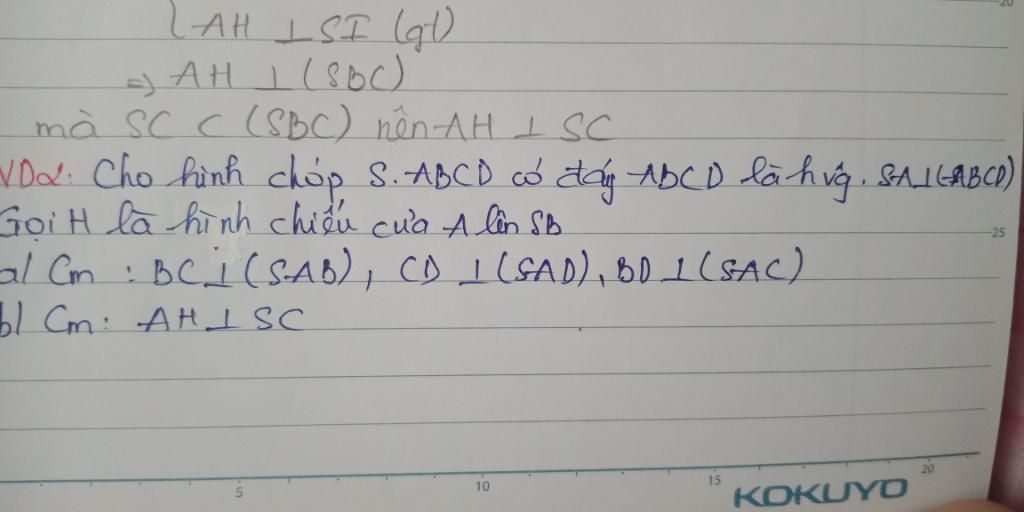 AH ⊥ SI (gt)
=> AH ⊥ (SBC)
mà SC ⊂ (SBC) nên AH ⊥ SC
VD2: Cho hình chóp S.ABCD có đáy ABCD là hvg. SA⊥(ABCD)
Gọi H là hình chiếu của A lên SB
a/ Cm : BC⊥(SAB), CD ⊥(SAD), BD⊥(SAC)
b/ Cm: AH⊥SC
20
25
5 10 15 20
KOKUYO